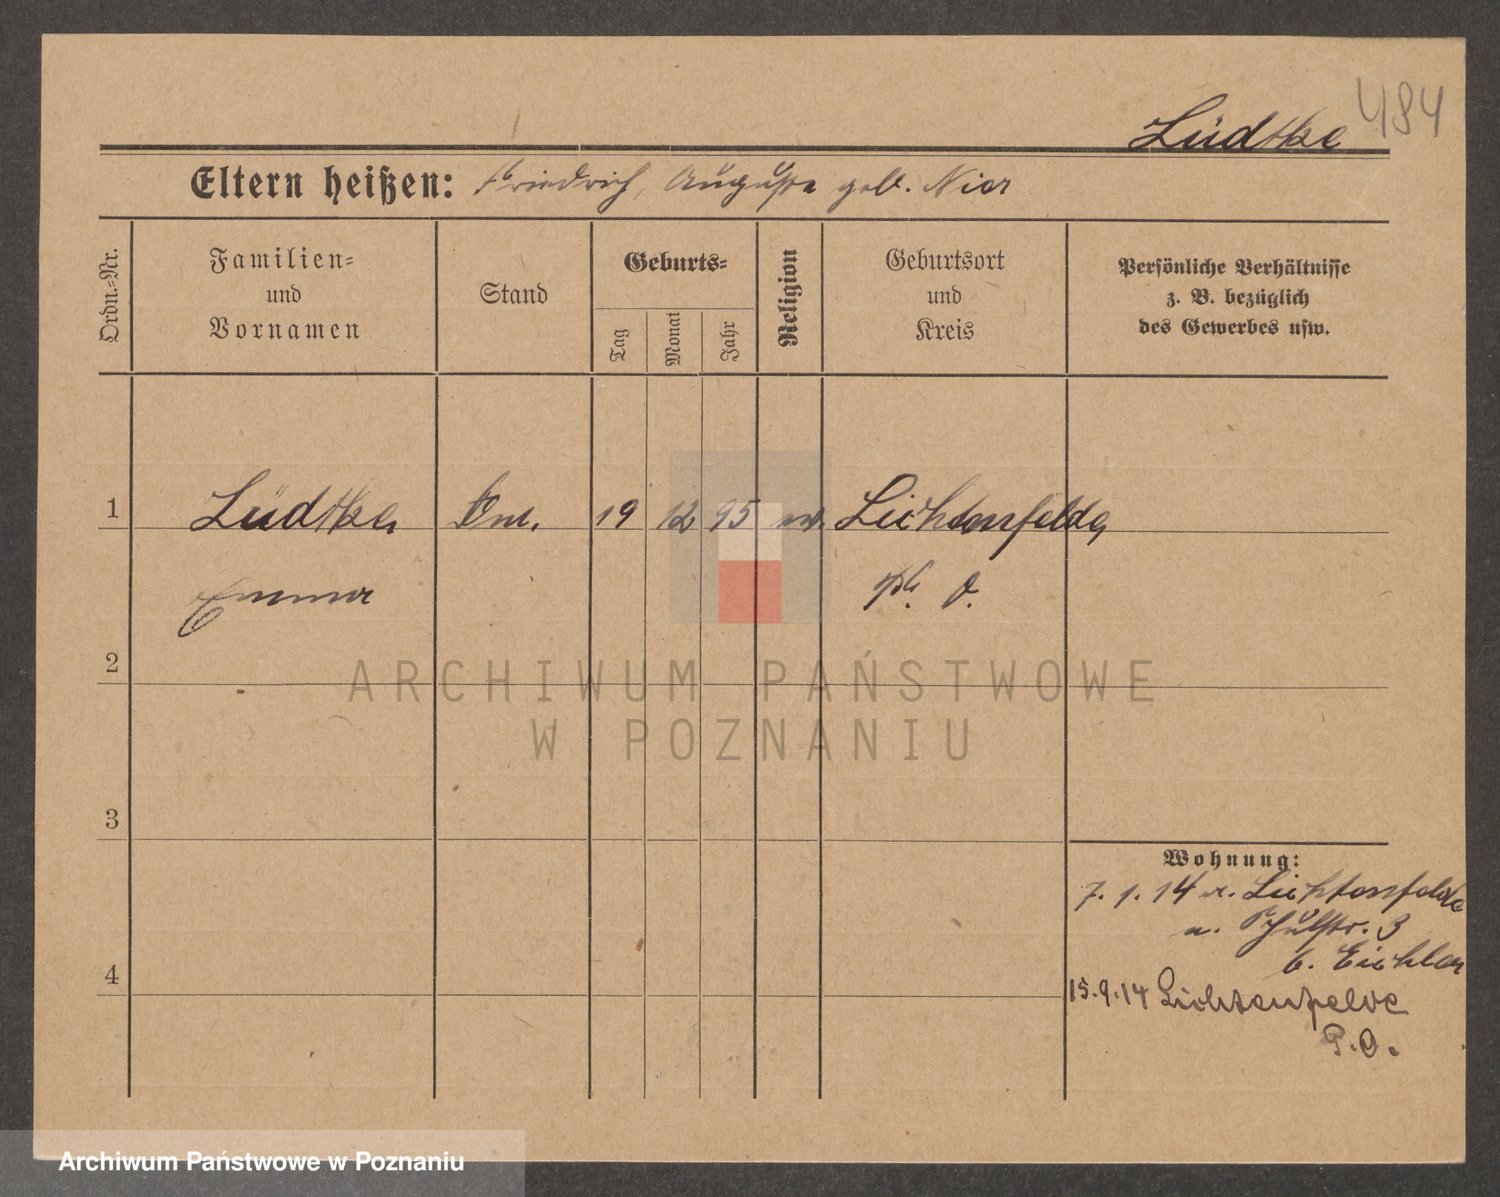 484
Lüdtke
Eltern heißen: Friedrich, Auguste geb. Nier
Ordn.-Nr.
Familien- und Vornamen
Stand
Geburts-
Tag
Monat
Jahr
Religion
Geburtsort und Kreis
Persönliche Verhältnisse
z. B. bezüglich
des Gewerbes usw.
1 Lüdtke 19 12 95 ev. Lichtenfelde
Emma
2
3
4
Wohnung:
7. 1. 14 v. Lichtenfelde
n. Schulstr. 3
b. Eichler
15.9.14 Lichtenfelde
P.O.
ARCHIWUM PAŃSTWOWE
W POZNANIU
Archiwum Państwowe w Poznaniu